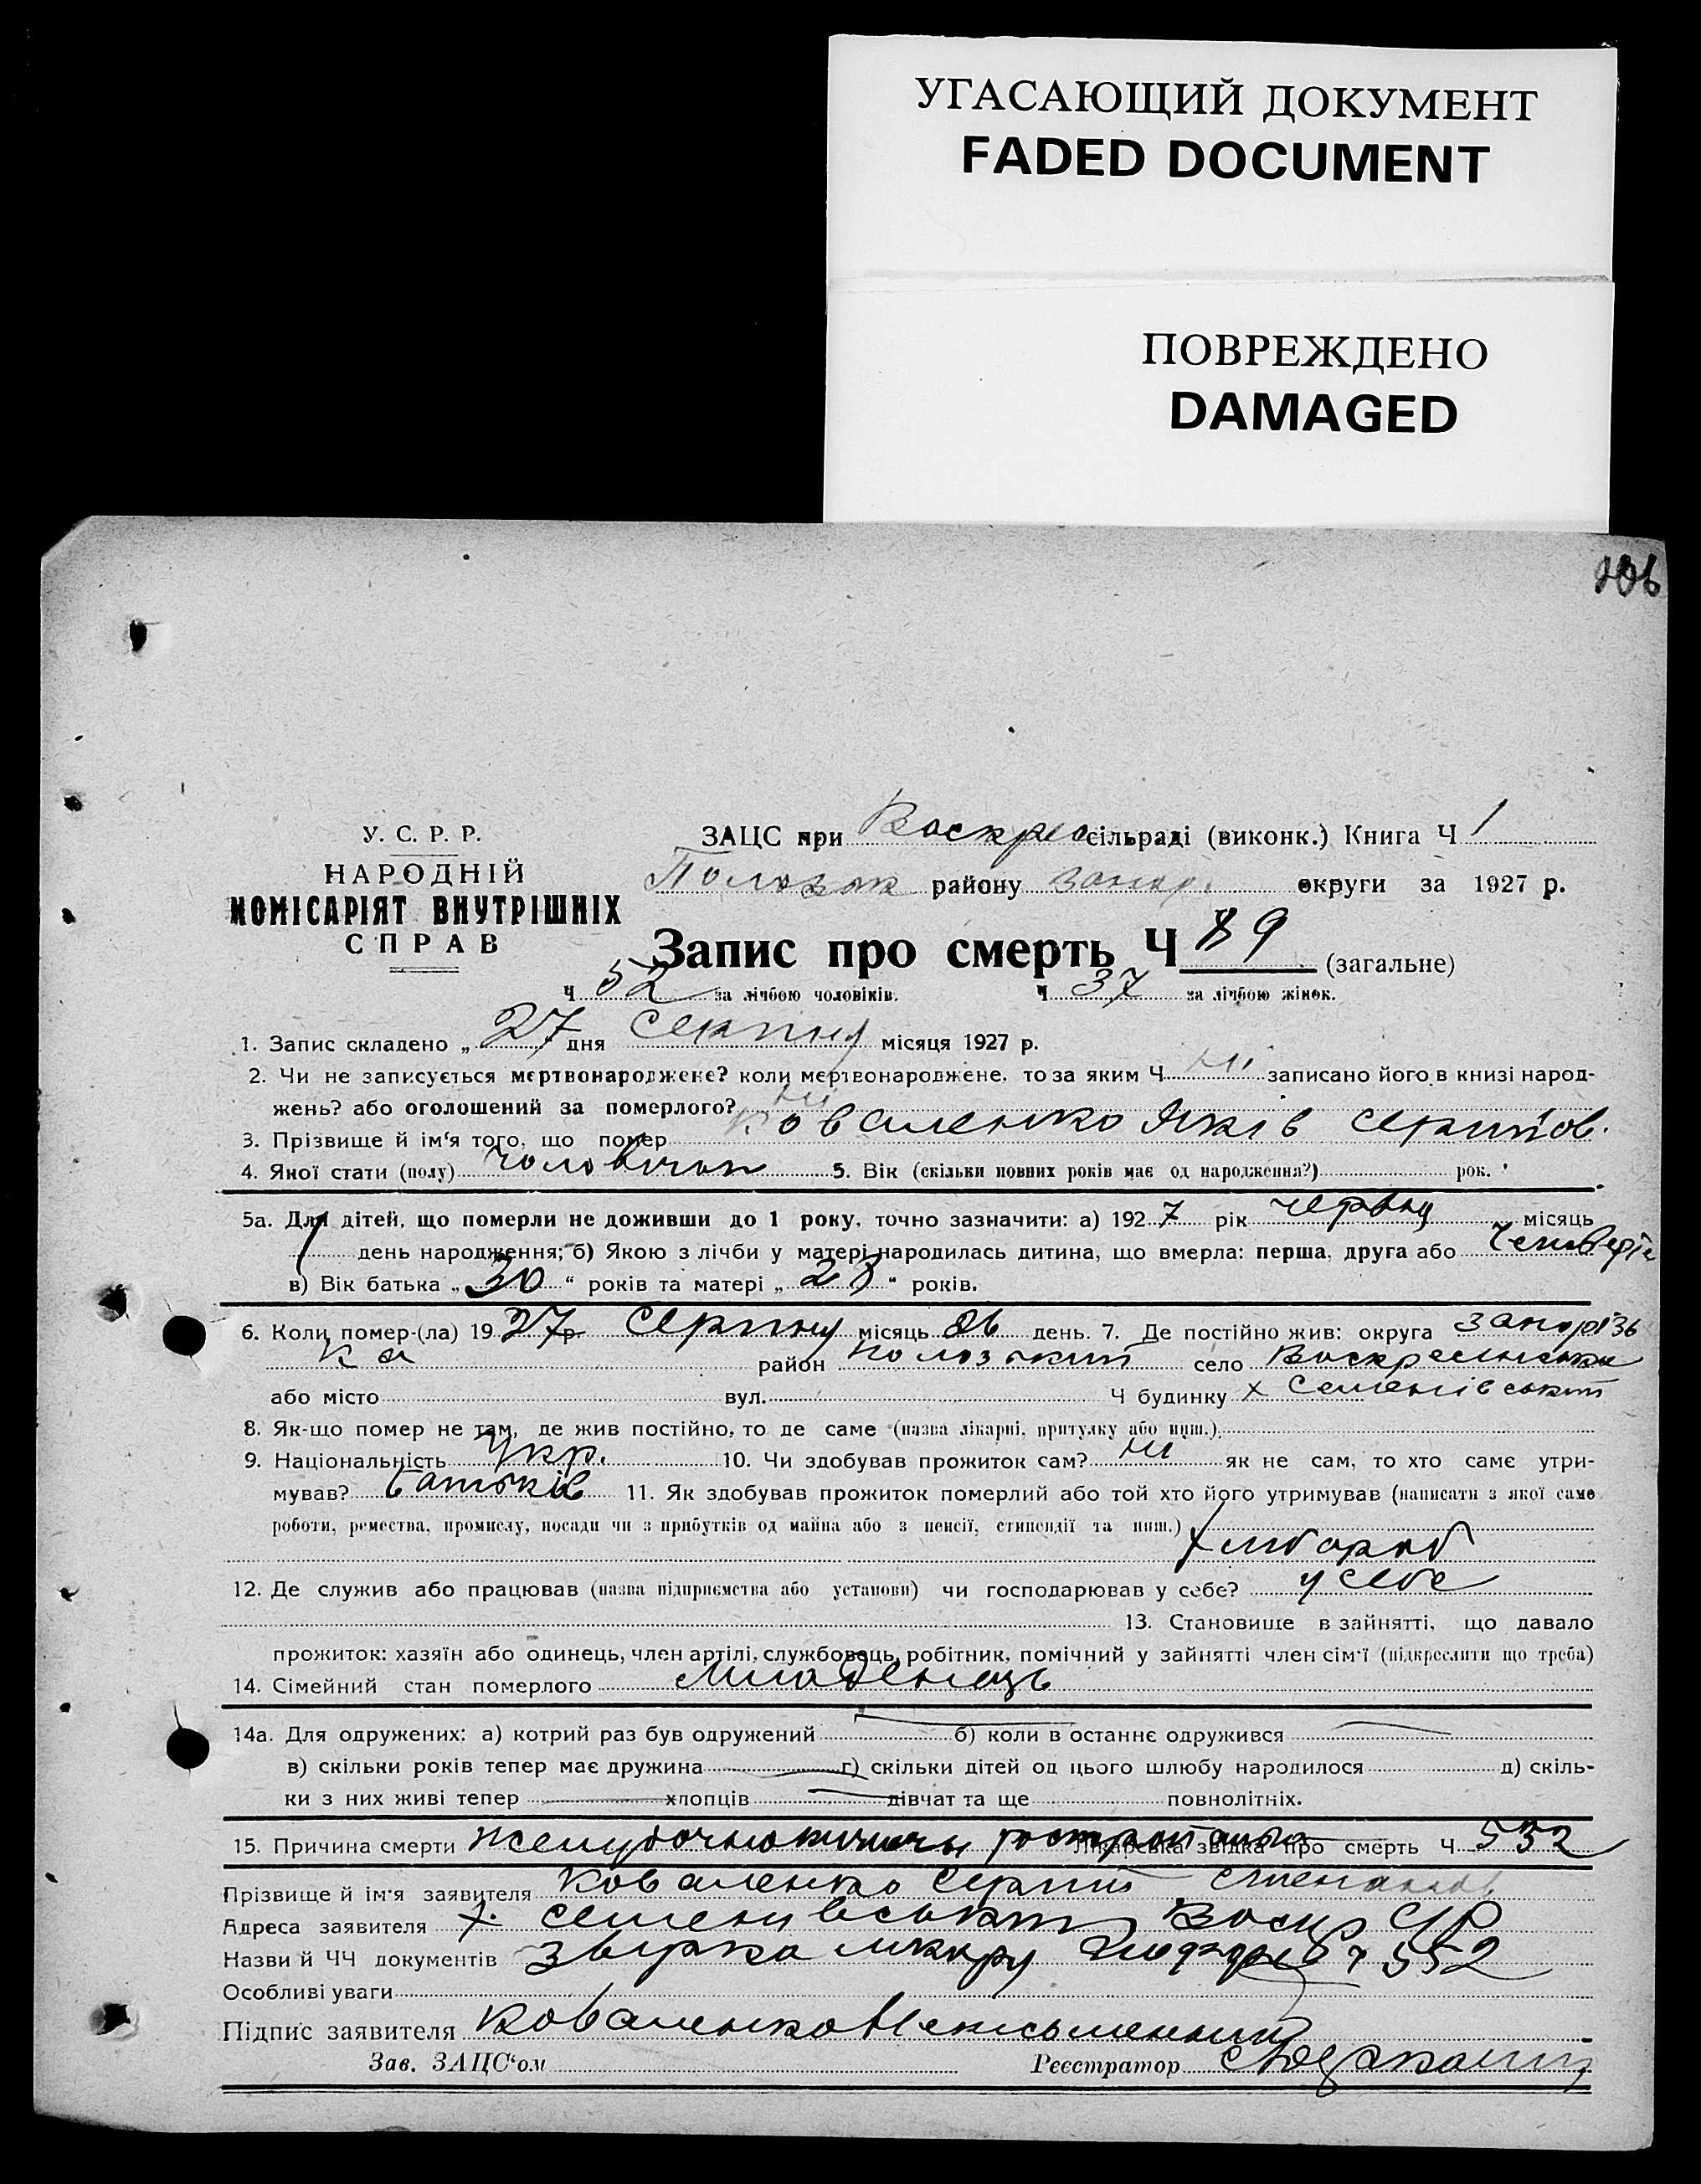 УГАСАЮЩИЙ ДОКУМЕНТ
FADED DOCUMENT
ПОВРЕЖДЕНО
DAMAGED
106
У. С. Р. Р.
НАРОДНІЙ
КОМІСАРІЯТ ВНУТРІШНІХ
СПРАВ
ЗАЦС при Воскрес сільраді (виконк.) Книга Ч 1
Полозьк району запор. округи за 1927 р.
Запис про смерть Ч 89 (загальне)
Ч 52 за лічбою чоловіків. Ч 37 за лічбою жінок.
1. Запис складено „ 27 " дня Серпня місяця 1927 р.
2. Чи не записується мертвонароджене? коли мертвонароджене, то за яким Ч ні записано його в книзі народ-
жень? або оголошений за померлого? ні
3. Прізвище й ім'я того, що помер Коваленко Яків Сергійов.
4. Якої стати (полу) чоловічої 5. Вік (скільки повних років має од народження?) рок.
5а. Для дітей, що померли не доживши до 1 року, точно зазначити: а) 1927 рік червня місяць
1 день народження; б) Якою з лічби у матері народилась дитина, що вмерла: перша, друга або
в) Вік батька „ 30 " років та матері „ 28 " років.
6. Коли помер-(ла) 1927 р. Серпня місяць 26 день. 7. Де постійно жив: округа Запорізь
ка район Полозький село Воскресенська
або місто вул. Ч будинку х Семенівський
8. Як-що помер не там, де жив постійно, то де саме (назва лікарні, притулку або инш.)
9. Національність Укр. 10. Чи здобував прожиток сам? ні як не сам, то хто саме утри-
мував? батьків 11. Як здобував прожиток померлий або той хто його утримував (написати з якої саме
роботи, ремества, промислу, посади чи з прибутків од майна або з пенсії, стипендії та инш.)
хлібороб
12. Де служив або працював (назва підприємства або установи) чи господарював у себе? у себе
13. Становище в зайнятті, що давало
прожиток: хазяїн або одинець, член артілі, службовець, робітник, помічний у зайнятті член сім'ї (підкреслити що треба)
14. Сімейний стан померлого младенець
14а. Для одружених: а) котрий раз був одружений б) коли в останнє одружився
в) скільки років тепер має дружина г) скільки дітей од цього шлюбу народилося д) скіль-
ки з них живі тепер хлопців дівчат та ще повнолітніх.
15. Причина смерти Лікарська звідка про смерть Ч 532
Прізвище й ім'я заявителя Коваленко Сергій
Адреса заявителя х. Семенівський
Назви й ЧЧ документів 552
Особливі уваги
Підпис заявителя Коваленко Неписьменний
Зав. ЗАЦС'ом Реєстратор